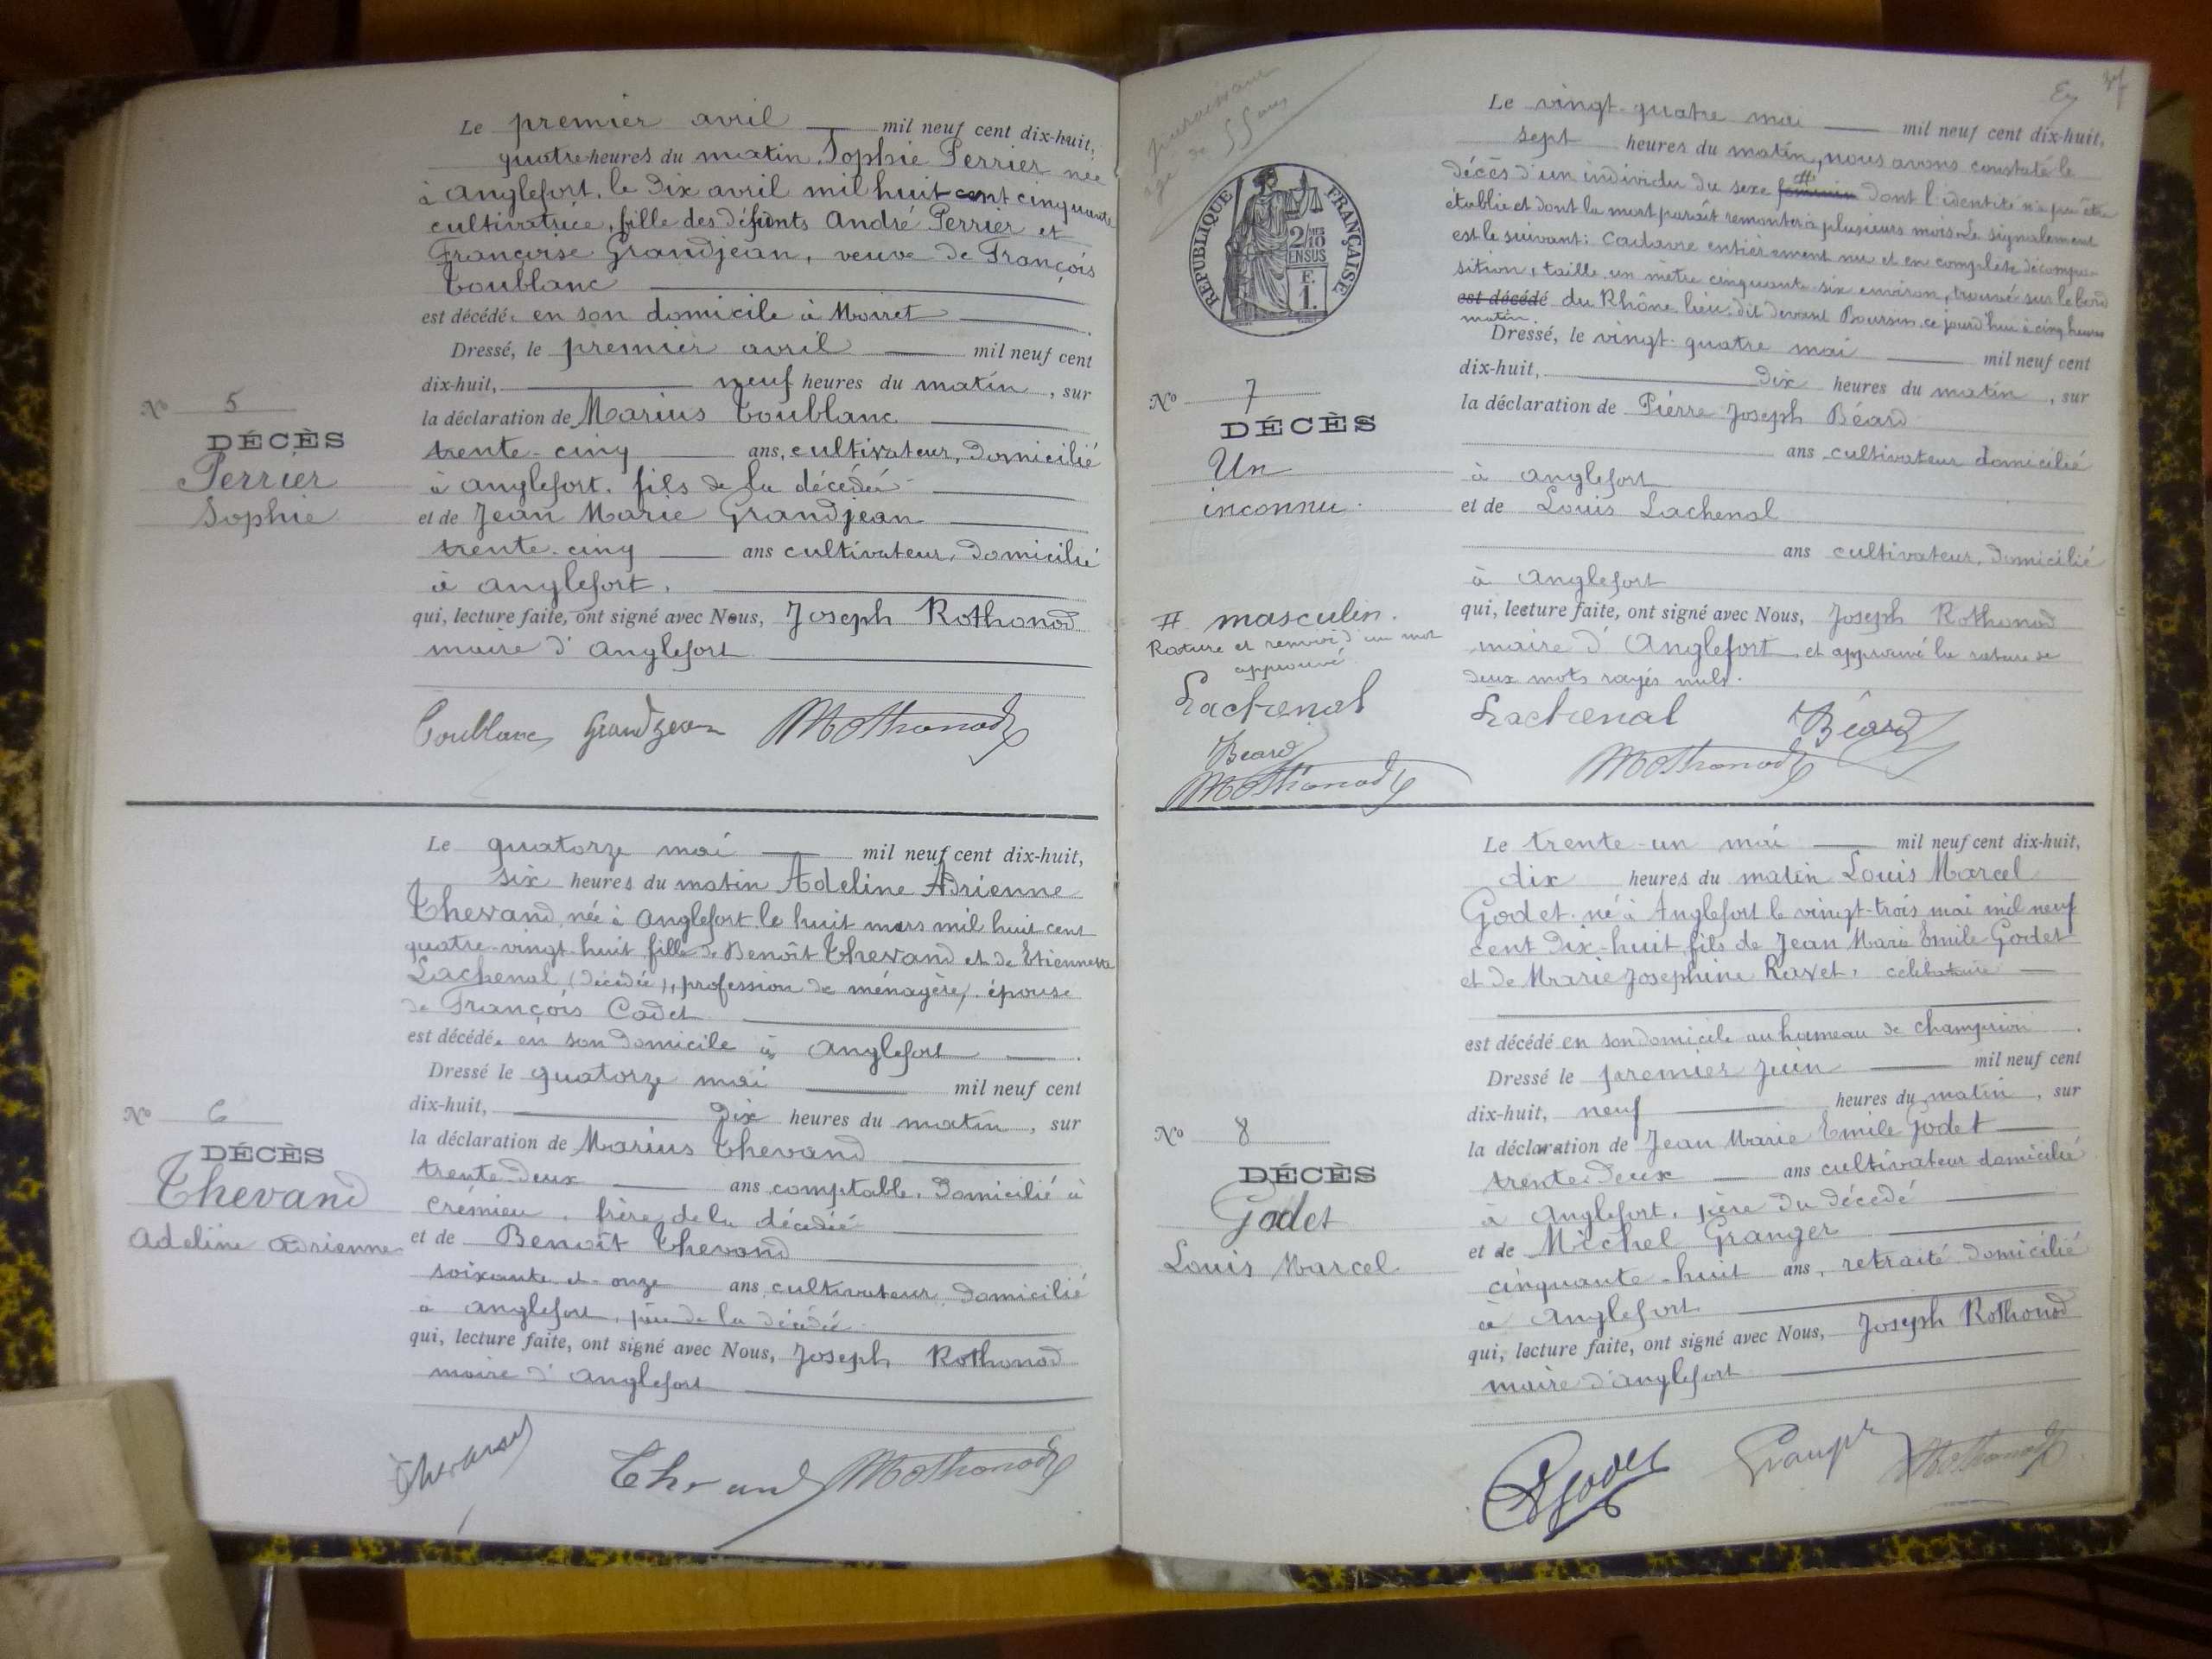 Le premier avril mil neuf cent dix-huit,
quatre heures du matin, Sophie Perrier née
à Anglefort, le dix avril mil huit cent cinquante
cultivatrice, fille des défunts André Perrier et
Françoise Grandjean, veuve de François
Toublanc
est décédée en son domicile à
Dressé, le premier avril mil neuf cent
dix-huit, neuf heures du matin, sur
la déclaration de Marius Toublanc
trente-cinq ans, cultivateur, domicilié
à Anglefort, fils de la décédée
et de Jean Marie Grandjean
trente-cinq ans cultivateur, domicilié
à Anglefort.
qui, lecture faite, ont signé avec Nous, Joseph Rothonod
maire d'Anglefort
Toublanc Grandjean Rothonod
No 5
DÉCÈS
Perrier
Sophie
Le quatorze mai mil neuf cent dix-huit,
six heures du matin Adeline Adrienne
Thevand, née à Anglefort le huit mars mil huit cent
quatre-vingt huit fille de Benoît Thevand et de Etiennette
Lachenal (décédée), profession de ménagère, épouse
de François Cadet
est décédée en son domicile à Anglefort
Dressé le quatorze mai mil neuf cent
dix-huit, dix heures du matin, sur
la déclaration de Marius Thevand
trente-deux ans comptable, domicilié à
Crémieu, frère de la décédée
et de Benoît Thevand
soixante et onze ans cultivateur, domicilié
à Anglefort, père de la décédée
qui, lecture faite, ont signé avec Nous, Joseph Rothonod
maire d'Anglefort
Thevand Thevand Rothonod
No 6
DÉCÈS
Thevand
Adeline Adrienne
de 55 ans
RÉPUBLIQUE FRANÇAISE
2/10 EN SUS
F.
1.
Le vingt-quatre mai mil neuf cent dix-huit,
sept heures du matin, nous avons constaté le
décès d'un individu du sexe # féminin dont l'identité n'a pu être
établie et dont la mort paraît remonter à plusieurs mois. Le signalement
est le suivant: Cadavre entièrement nu et en complète décompo-
sition, taille un mètre cinquante-six environ, trouvé sur le bord
est décédé du Rhône lieu dit devant Boursin, ce jourd'hui à cinq heures
matin.
Dressé, le vingt-quatre mai mil neuf cent
dix-huit, dix heures du matin, sur
la déclaration de Pierre Joseph Béard
ans cultivateur domicilié
à Anglefort
et de Louis Lachenal
ans cultivateur, domicilié
à Anglefort
qui, lecture faite, ont signé avec Nous, Joseph Rothonod
maire d'Anglefort et approuvé la rature de
deux mots rayés nuls.
Lachenal Béard
Rothonod
No 7
DÉCÈS
Un
inconnu.
# masculin.
Rature et renvoi d'un mot
approuvé
Lachenal
Béard
Rothonod
Le trente-un mai mil neuf cent dix-huit,
dix heures du matin Louis Marcel
Godet né à Anglefort le vingt-trois mai mil neuf
cent dix-huit, fils de Jean Marie Emile Godet
et de Marie Josephine Ravet, célibataire
est décédé en son domicile au hameau de Champrion
Dressé le premier juin mil neuf cent
dix-huit, neuf heures du matin, sur
la déclaration de Jean Marie Emile Godet
trente-deux ans cultivateur domicilié
à Anglefort, père du décédé
et de Michel Granger
cinquante-huit ans, retraité domicilié
à Anglefort
qui, lecture faite, ont signé avec Nous, Joseph Rothonod
maire d'Anglefort
Godet Granger Rothonod
No 8
DÉCÈS
Godet
Louis Marcel